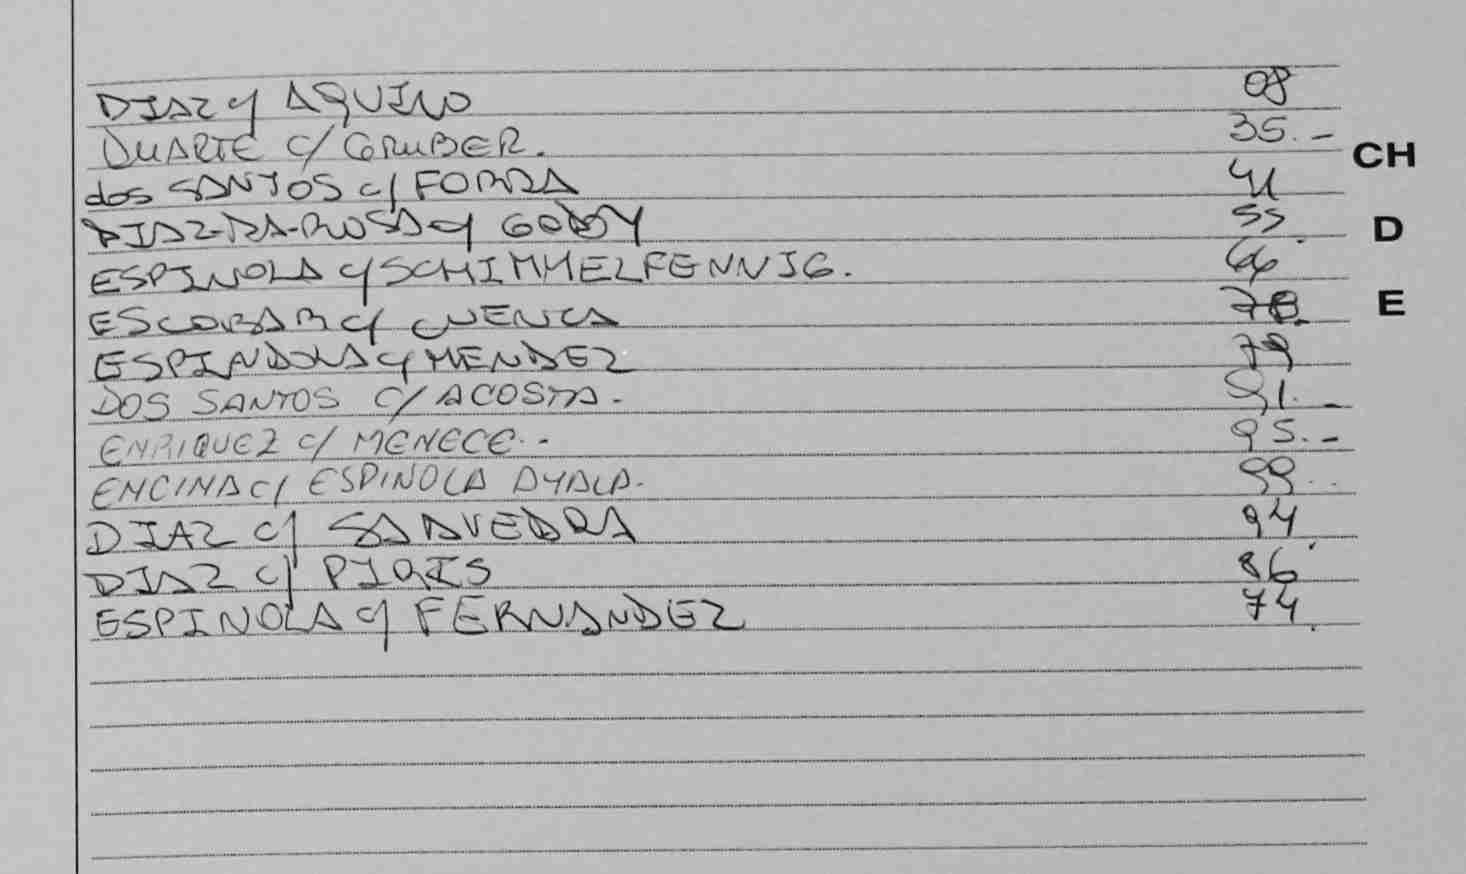 DIAZ c/ AQUINO 08
DUARTE c/ GRUBER. 35.-
dos SANTOS c/ FORRA 41
DIAZ-DA-ROSA c/ GODOY 55
ESPINOLA c/ SCHIMMELFENNIG. 66
ESCOBAR c/ CUENCA 78.
ESPINDOLA c/ MENDEZ 79
DOS SANTOS c/ ACOSTA. 91.-
ENRIQUEZ c/ MENECE.- 95.-
ENCINA c/ ESPINOLA AYALA. 99.
DIAZ c/ SAAVEDRA 94.
DIAZ c/ PIRIS 86
ESPINOLA c/ FERNANDEZ 74.
CH
D
E